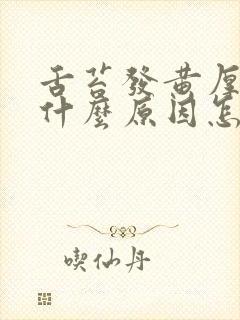 舌苔發黃厚
什麼原因怎
喫仙丹